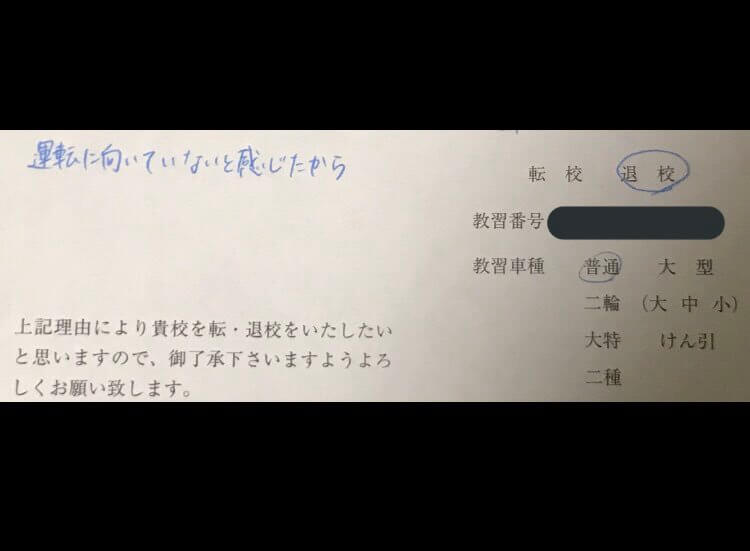 運転に向いていないと感じたから
転 校 退 校
教習番号
教習車種 普通 大 型
二輪 (大 中 小)
大特 けん引
二種
上記理由により貴校を転・退校をいたしたい
と思いますので、御了承下さいますようよろ
しくお願い致します。